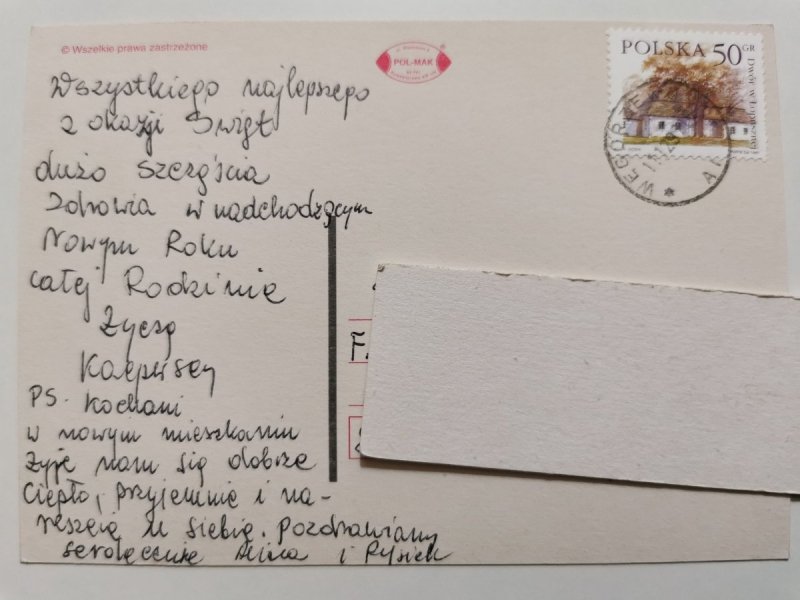 © Wszelkie prawa zastrzeżone
POL-MAK
POLSKA 50 GR
Dwór w Łopusznej
Wszystkiego najlepszego
z okazji Świąt
dużo szczęścia
Zdrowia w nadchodzącym
Nowym Roku
całej Rodzinie
Życzą
PS. Kochani
w nowym mieszkaniu
żyje nam się dobrze
Ciepło, przyjemnie i na-
reszcie u siebie. Pozdrawiamy
serdecznie Alina i Rysiek